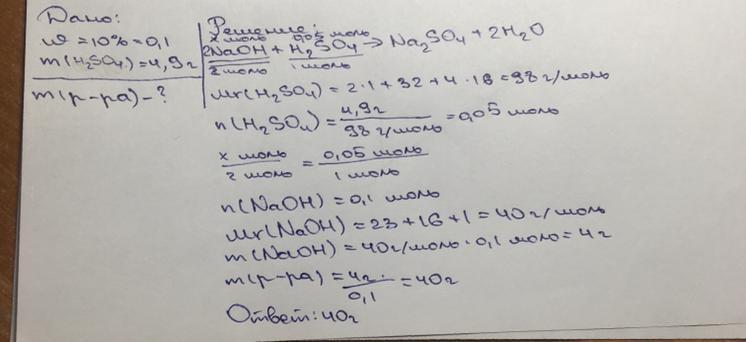 Дано:
ω = 10% = 0,1
m(H₂SO₄) = 4,9г
m(р-ра) - ?
Решение:
x моль 0,05 моль
2NaOH + H₂SO₄ → Na₂SO₄ + 2H₂O
2 моль 1 моль
Mr(H₂SO₄) = 2·1 + 32 + 4·16 = 98 г/моль
n(H₂SO₄) = 4,9г / 98 г/моль = 0,05 моль
x моль / 2 моль = 0,05 моль / 1 моль
n(NaOH) = 0,1 моль
Mr(NaOH) = 23 + 16 + 1 = 40 г/моль
m(NaOH) = 40г/моль · 0,1 моль = 4г
m(р-ра) = 4г / 0,1 = 40г
Ответ: 40г